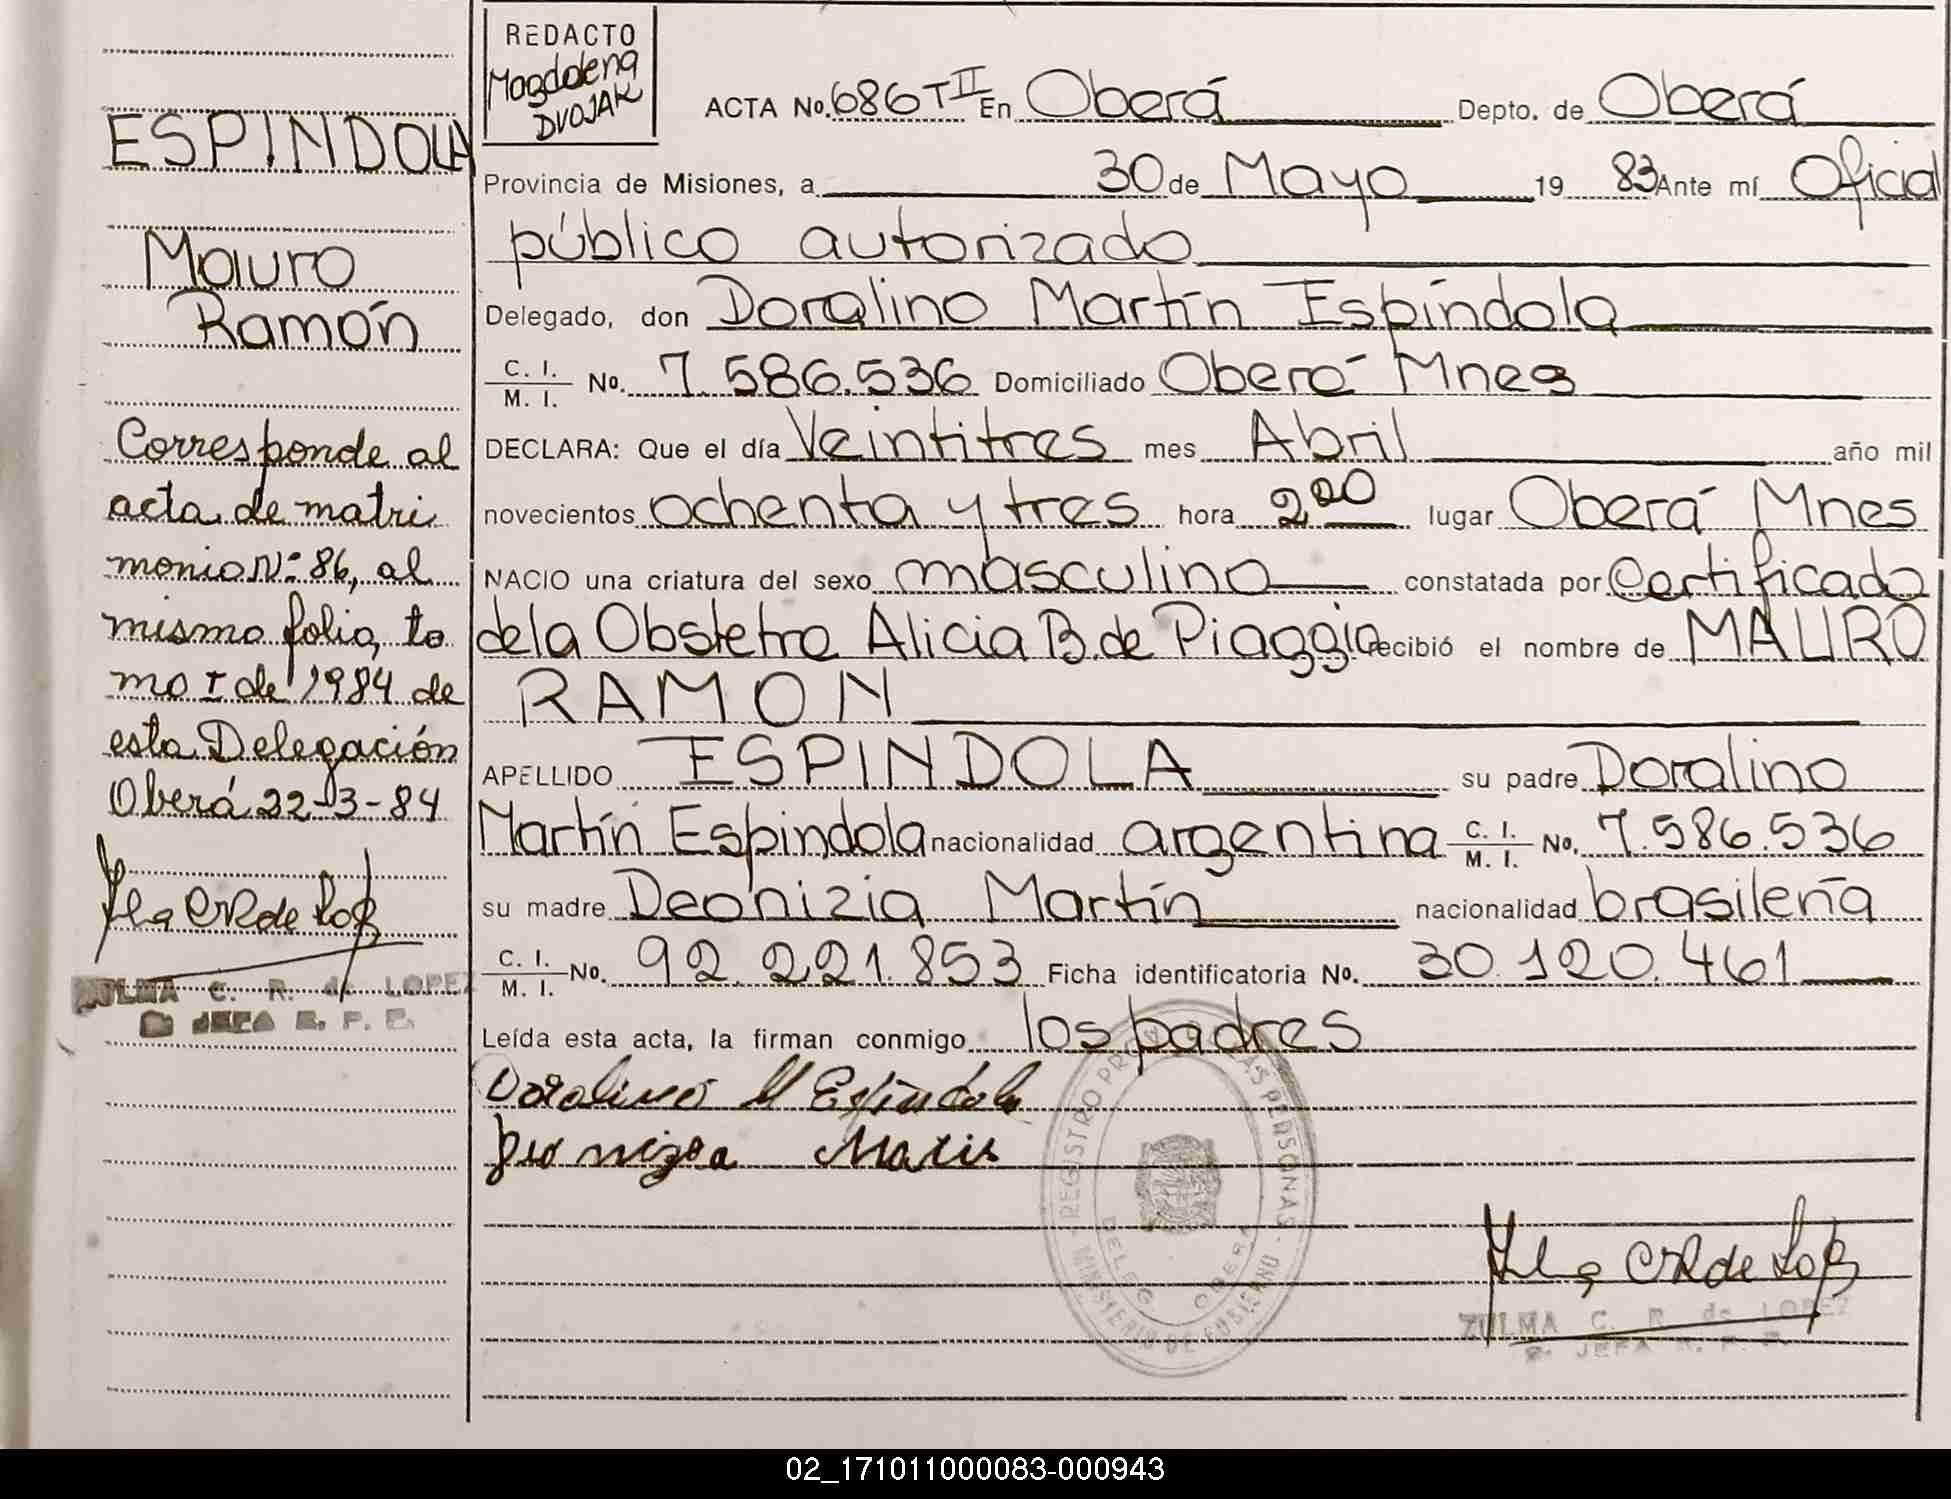 REDACTO
Magdalena
DVOJAK
ACTA No. 686 T II En Oberá Depto. de Oberá
Provincia de Misiones, a 30 de Mayo 19 83 Ante mí Oficial
público autorizado
Delegado, don Doralino Martín Espíndola
C. I. / M. I. No. 7.586.536 Domiciliado Oberá Mnes
DECLARA: Que el día Veintitres mes Abril año mil
novecientos ochenta y tres hora 2 00 lugar Oberá Mnes
NACIO una criatura del sexo masculino constatada por Certificado
de la Obstetra Alicia B. de Piaggio recibió el nombre de MAURO
RAMON
APELLIDO ESPINDOLA su padre Doralino
Martín Espíndola nacionalidad argentina C. I. / M. I. No. 7.586.536
su madre Deonizia Martín nacionalidad brasileña
C. I. / M. I. No. 92.221.853 Ficha identificatoria No. 30.120.461
Leída esta acta, la firman conmigo los padres
Doralino M Espindola
ZULMA C. R. de LOPEZ
ESPINDOLA
Mauro
Ramón
Corresponde al
acta de matri
monio Nº 86, al
mismo folio, to
mo I de 1984 de
esta Delegación
Oberá 22-3-84
ZULMA C. R. de LOPEZ
JEFA R. P. P.
REGISTRO PROV. LAS PERSONAS
MINISTERIO DE GOBIERNO
DELEG OBERA
02_171011000083-000943